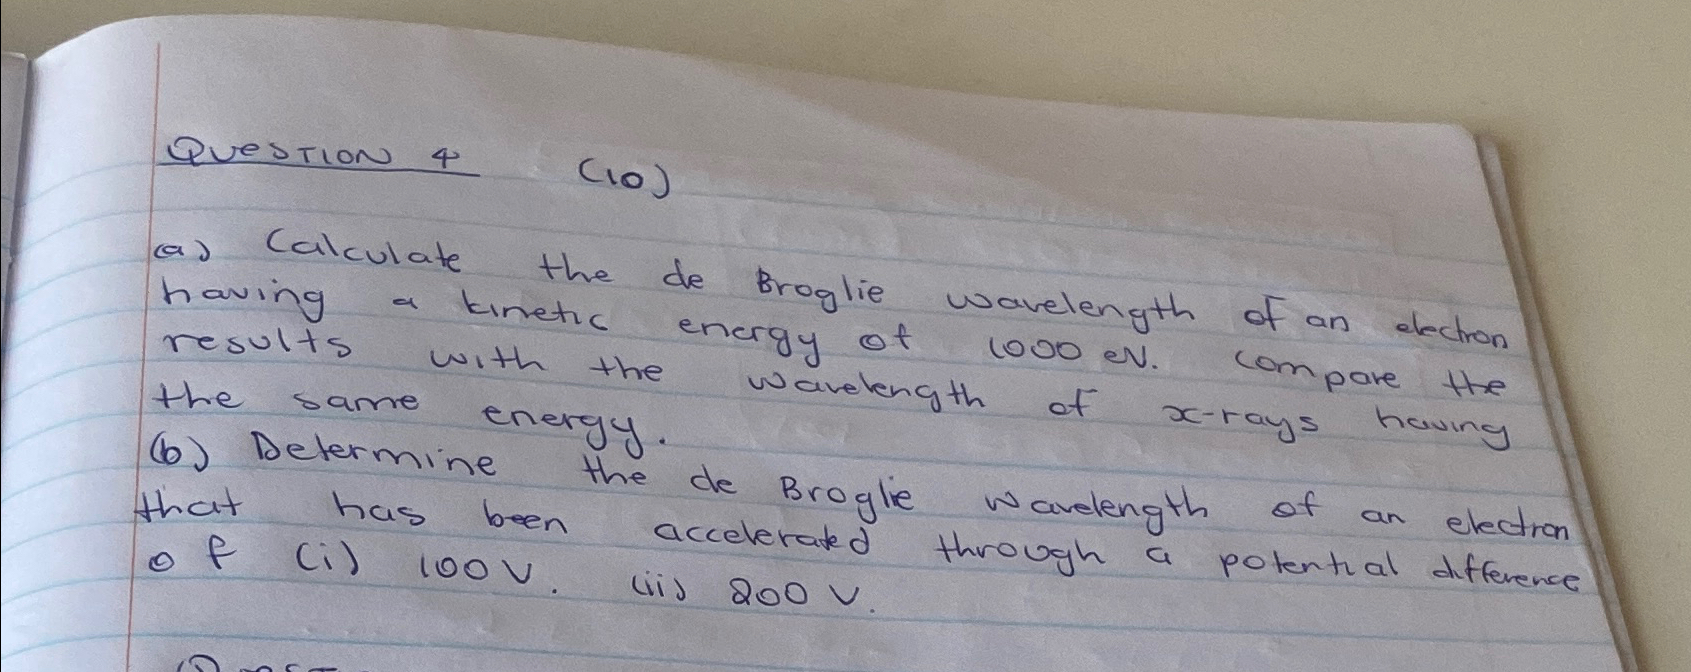 QUESTION 4 (10)
(a) Calculate the de Broglie wavelength of an electron
having a kinetic energy of 1000 eV. Compare the
results with the wavelength of x-rays having
the same energy.
(b) Determine the de Broglie wavelength of an electron
that has been accelerated through a potential difference
of (i) 100 V. (ii) 200 V.